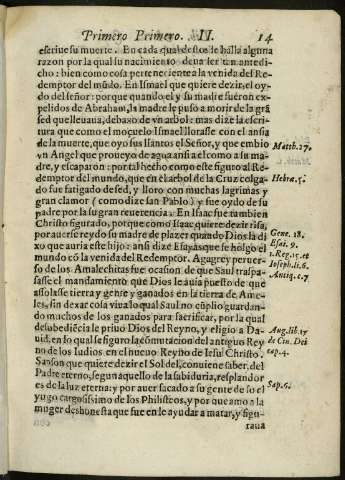 Primero Primero. II. 14
escriue su muerte. En cada qual destos se halla alguna
razon por la qual su nacimiento deua ser tan antedi-
cho: bien como cosa perteneciente a la venida del Re-
demptor del mũdo. En Ismael que quiere dezir, el oy-
do del señor: porque quando el y su madre fueron ex-
pelidos de Abraham, la madre le puso a morir de la grã
sed que lleuaua, debaxo de vn arbol: mas dize la escri-
tura que como el moçuelo Ismael llorasse con el ansia
de la muerte, que oyo sus llantos el Señor, y que embio
vn Angel que proueyo de agua ansi a el como a su ma-
dre, y escaparon: por tal hecho como este figuro al Re-
demptor del mundo, que en el arbol de la Cruz colga-
do fue fatigado de sed, y lloro con muchas lagrimas y
gran clamor (como dize san Pablo) y fue oydo de su
padre por la su gran reuerencia. En Isaac fue tambien
Christo figurado, porque como Isaac quiere dezir risa,
por auerse reydo su madre de plazer quando Dios la di-
xo que auria este hijo: ansi dize Esayas que se holgo el
mundo cõ la venida del Redemptor. Agag rey peruer-
so de los Amalechitas fue ocasion de que Saul traspa-
sasse el mandamiento que Dios le auia puesto de que
assolasse tierra y gente y ganados en la tierra de Ame-
lec, sin dexar cosa viua lo qual Saul no cũplio guardan-
do muchos de los ganados para sacrificar, por la qual
desobediẽcia le priuo Dios del Reyno, y eligio a Da-
uid, en lo qual se figuro la cõmutacion del antiguo Rey
no de los Iudios en el nueuo Reyno de Iesu Christo.
Sanson que quiere dezir el Sol del, conuiene saber, del
Padre eterno, segun aquello de la sabiduria, resplandor
es de la luz eterna: y por auer sacado a su gente de so el
yugo cargosissimo de los Philisteos, y por que amo a la
muger deshonesta que fue en le ayudar a matar, y figu-
raua
Matth. 27.
Hebra. 5.
Gene. 18.
Esai. 9.
1. Reg. 15. et
Ioseph. li. 6.
Antiq. c. 7
Aug. lib. 17
de Ciu. Dei
cap. 4.
Sap. 6.